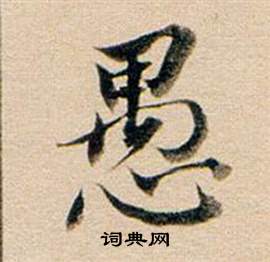 愚
词典网